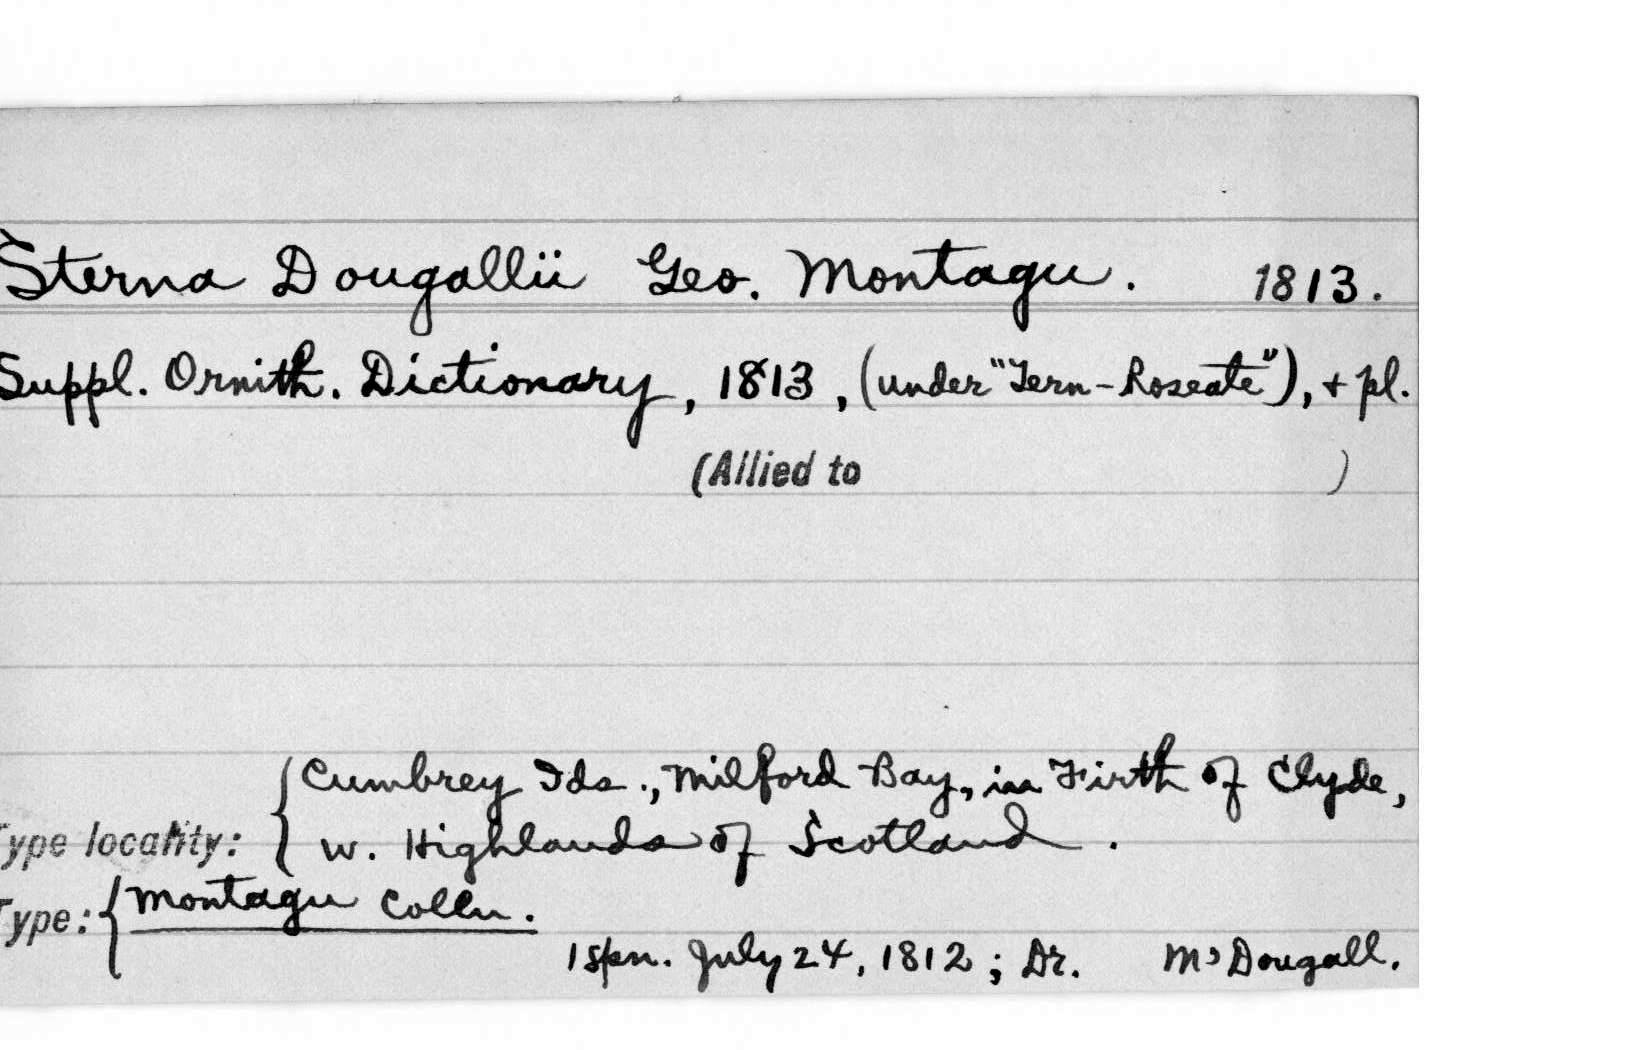 Sterna Dougallii Geo. Montagu. 1813.
Suppl. Ornith. Dictionary, 1813, (under "Tern-Roseate"), + pl.
(Allied to )
Cumbrey Ids., Milford Bay, in Firth of Clyde,
Type locality: { w. Highlands of Scotland.
Type: { Montagu Colln.
1 spn. July 24, 1812; Dr. McDougall.